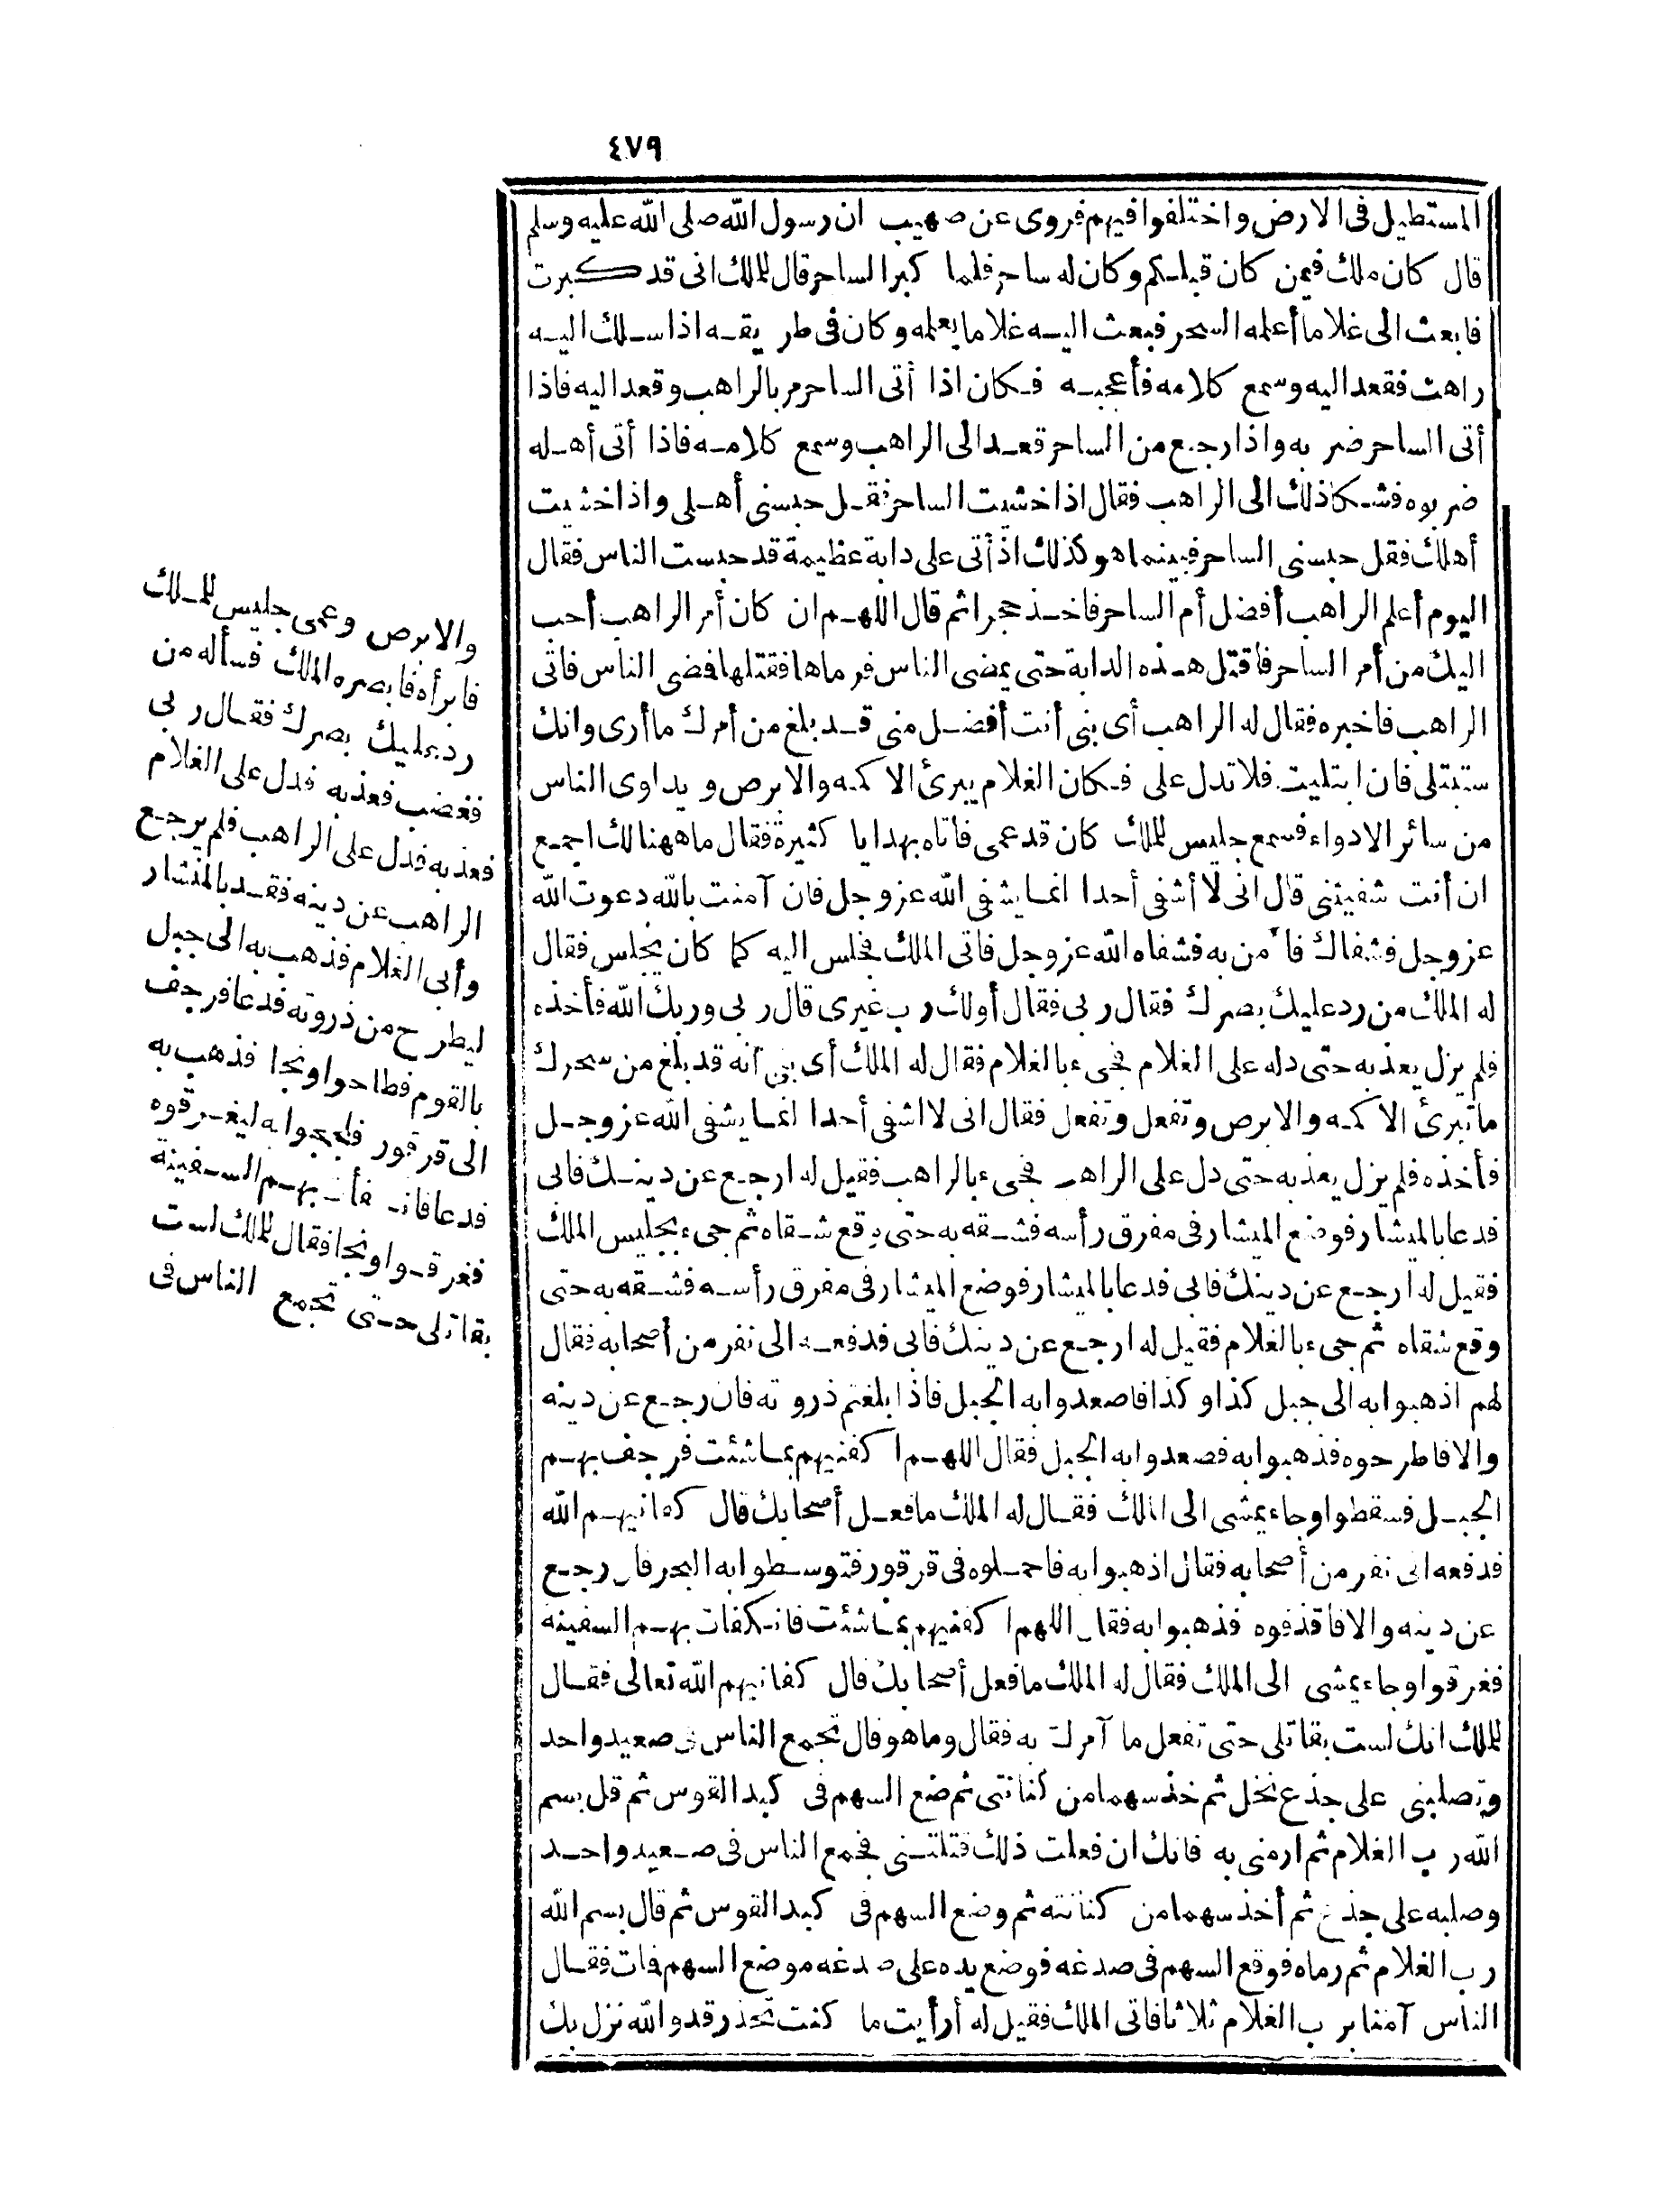 ٤٧٩
المستطيل فى الارض واختلفوا فيهم فروى عن صهيب ان رسول الله صلى الله عليه وسلم
قال كان ملك فيمن كان قبلكم وكان له ساحر فلما كبر الساحر قال للملك انى قد كبرت
فابعث الى غلاما أعلمه السحر فبعث اليه غلاما يعلمه وكان فى طريقه اذا سلك اليه
راهب فقعد اليه وسمع كلامه فأعجبه فكان اذا أتى الساحر مر بالراهب وقعد اليه فاذا
أتى الساحر ضربه واذا رجع من الساحر قعد الى الراهب وسمع كلامه فاذا أتى أهله
ضربوه فشكا ذلك الى الراهب فقال اذا خشيت الساحر فقل حبسنى أهلى واذا خشيت
أهلك فقل حبسنى الساحر فبينما هو كذلك اذ أتى على دابة عظيمة قد حبست الناس فقال
اليوم أعلم الراهب أفضل أم الساحر فاخذ حجرا ثم قال اللهم ان كان أمر الراهب أحب
اليك من أمر الساحر فاقتل هذه الدابة حتى يمضى الناس فرماها فقتلها فمضى الناس فاتى
الراهب فاخبره فقال له الراهب أى بنى أنت أفضل منى قد بلغ من أمرك ما أرى وانك
ستبتلى فان ابتليت فلا تدل على فكان الغلام يبرئ الاكمه والابرص ويداوى الناس
من سائر الادواء فسمع جليس للملك كان قد عمى فاتاه بهدايا كثيرة فقال ما ههنا لك اجمع
ان أنت شفيتنى قال انى لا أشفى أحدا انما يشفى الله عز وجل فان آمنت بالله دعوت الله
عز وجل فشفاك فآمن به فشفاه الله عز وجل فاتى الملك فجلس اليه كما كان يجلس فقال
له الملك من رد عليك بصرك فقال ربى فقال أولك رب غيرى قال ربى وربك الله فأخذه
فلم يزل يعذبه حتى دله على الغلام فجىء بالغلام فقال له الملك أى بنى انه قد بلغ من سحرك
ما تبرئ الاكمه والابرص وتفعل وتفعل فقال انى لا اشفى أحدا انما يشفى الله عز وجل
فأخذه فلم يزل يعذبه حتى دل على الراهب فجىء بالراهب فقيل له ارجع عن دينك فابى
فدعا بالميشار فوضع الميشار فى مفرق رأسه فشقه به حتى وقع شقاه ثم جىء بجليس الملك
فقيل له ارجع عن دينك فابى فدعا بالميشار فوضع الميشار فى مفرق رأسه فشقه به حتى
وقع شقاه ثم جىء بالغلام فقيل له ارجع عن دينك فابى فدفعه الى نفر من أصحابه فقال
لهم اذهبوا به الى جبل كذا وكذا فاصعدوا به الجبل فاذا بلغتم ذروته فان رجع عن دينه
والا فاطرحوه فذهبوا به فصعدوا به الجبل فقال اللهم اكفنيهم بما شئت فرجف بهم
الجبل فسقطوا وجاء يمشى الى الملك فقال له الملك ما فعل أصحابك قال كفانيهم الله
فدفعه الى نفر من أصحابه فقال اذهبوا به فاحملوه فى قرقور فتوسطوا به البحر فان رجع
عن دينه والا فاقذفوه فذهبوا به فقال اللهم اكفنيهم بما شئت فانكفات بهم السفينه
فغرقوا وجاء يمشى الى الملك فقال له الملك ما فعل أصحابك قال كفانيهم الله تعالى فقال
للملك انك لست بقاتلى حتى تفعل ما آمرك به فقال وما هو قال تجمع الناس فى صعيد واحد
وتصلبنى على جذع نخل ثم خذ سهما من كنانتى ثم ضع السهم فى كبد القوس ثم قل بسم
الله رب الغلام ثم ارمنى به فانك ان فعلت ذلك قتلتنى فجمع الناس فى صعيد واحد
وصلبه على جذع ثم أخذ سهما من كنانته ثم وضع السهم فى كبد القوس ثم قال بسم الله
رب الغلام ثم رماه فوقع السهم فى صدغه فوضع يده على صدغه موضع السهم فمات فقال
الناس آمنا برب الغلام ثلاثا فاتى الملك فقيل له أرأيت ما كنت تحذر قد والله نزل بك
والابرص وعمى جليس للملك
فابرأه فابصره الملك فسأله من
رد عليك بصرك فقال ربى
فغضب فعذبه فدل على الغلام
فعذبه فدل على الراهب فلم يرجع
الراهب عن دينه فقد بالمنشار
وأبى الغلام فذهب به الى جبل
ليطرح من ذروته فدعا فرجف
بالقوم فطاحوا ونجا فذهب به
الى قرقور فلججوا به ليغرقوه
فدعا بهم السفينة
فغرقوا ونجا فقال للملك لست
بقاتلى حتى تجمع الناس فى